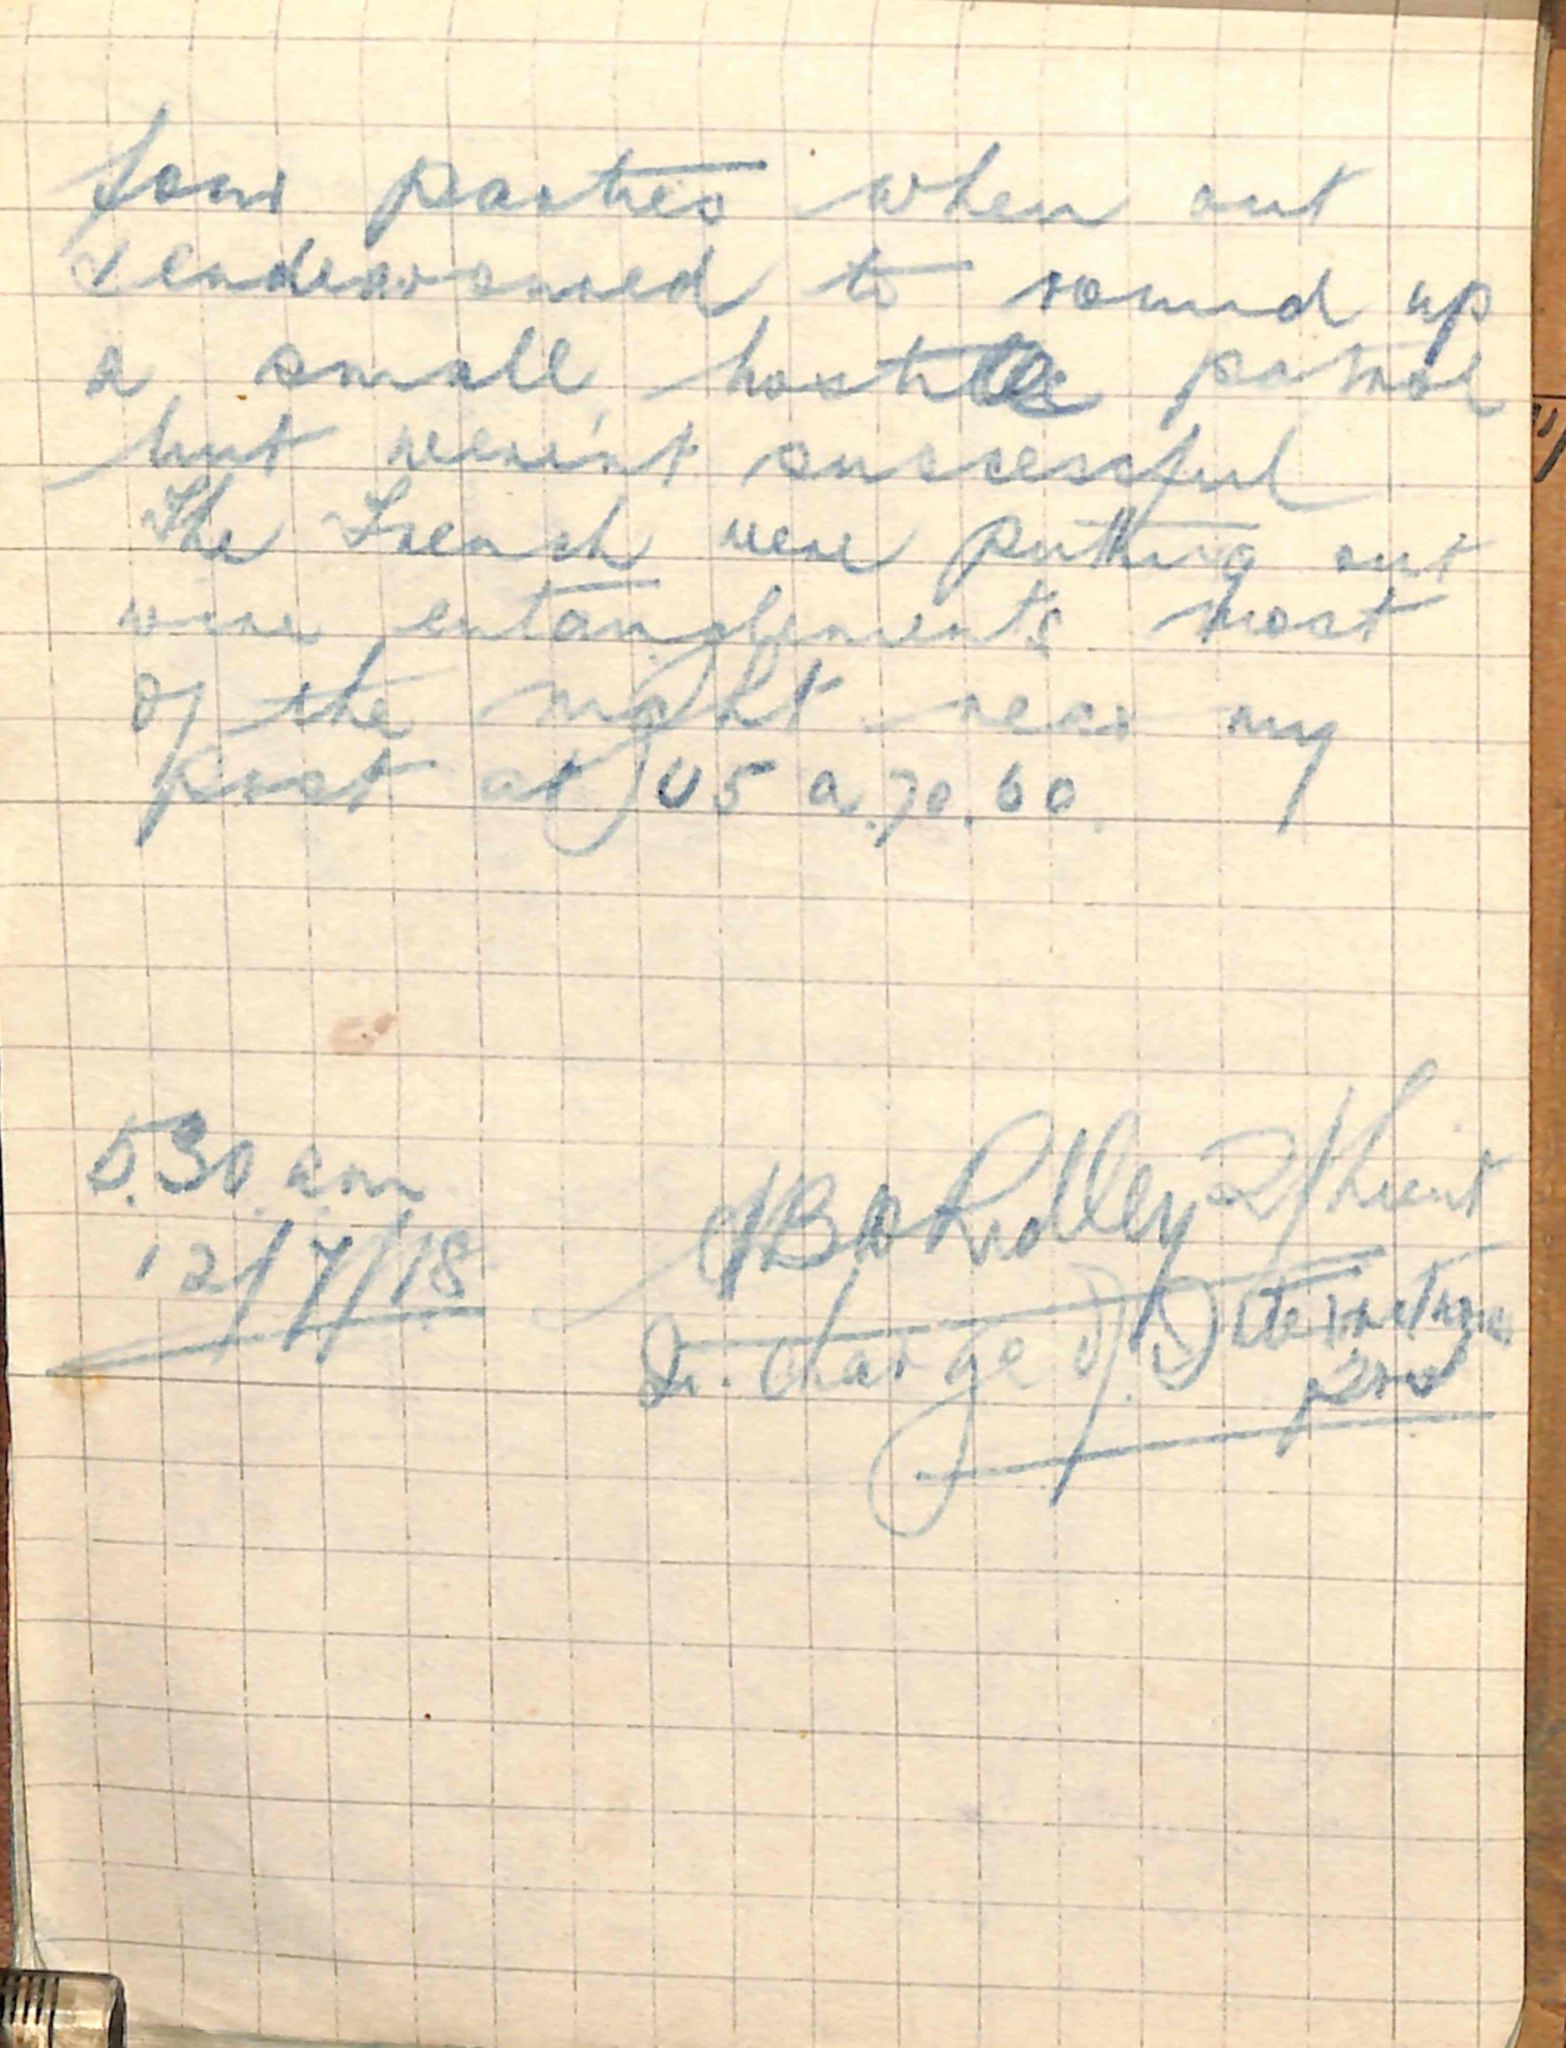 four parties when out
& endeavoured to round up
a small hostile patrol
but weren't successful
The French were putting out
wire entanglements most
of the night near my
post at U5 a.70.60.
5.30 am
12/7/18
Ridley 2/Lieut
In. charge of